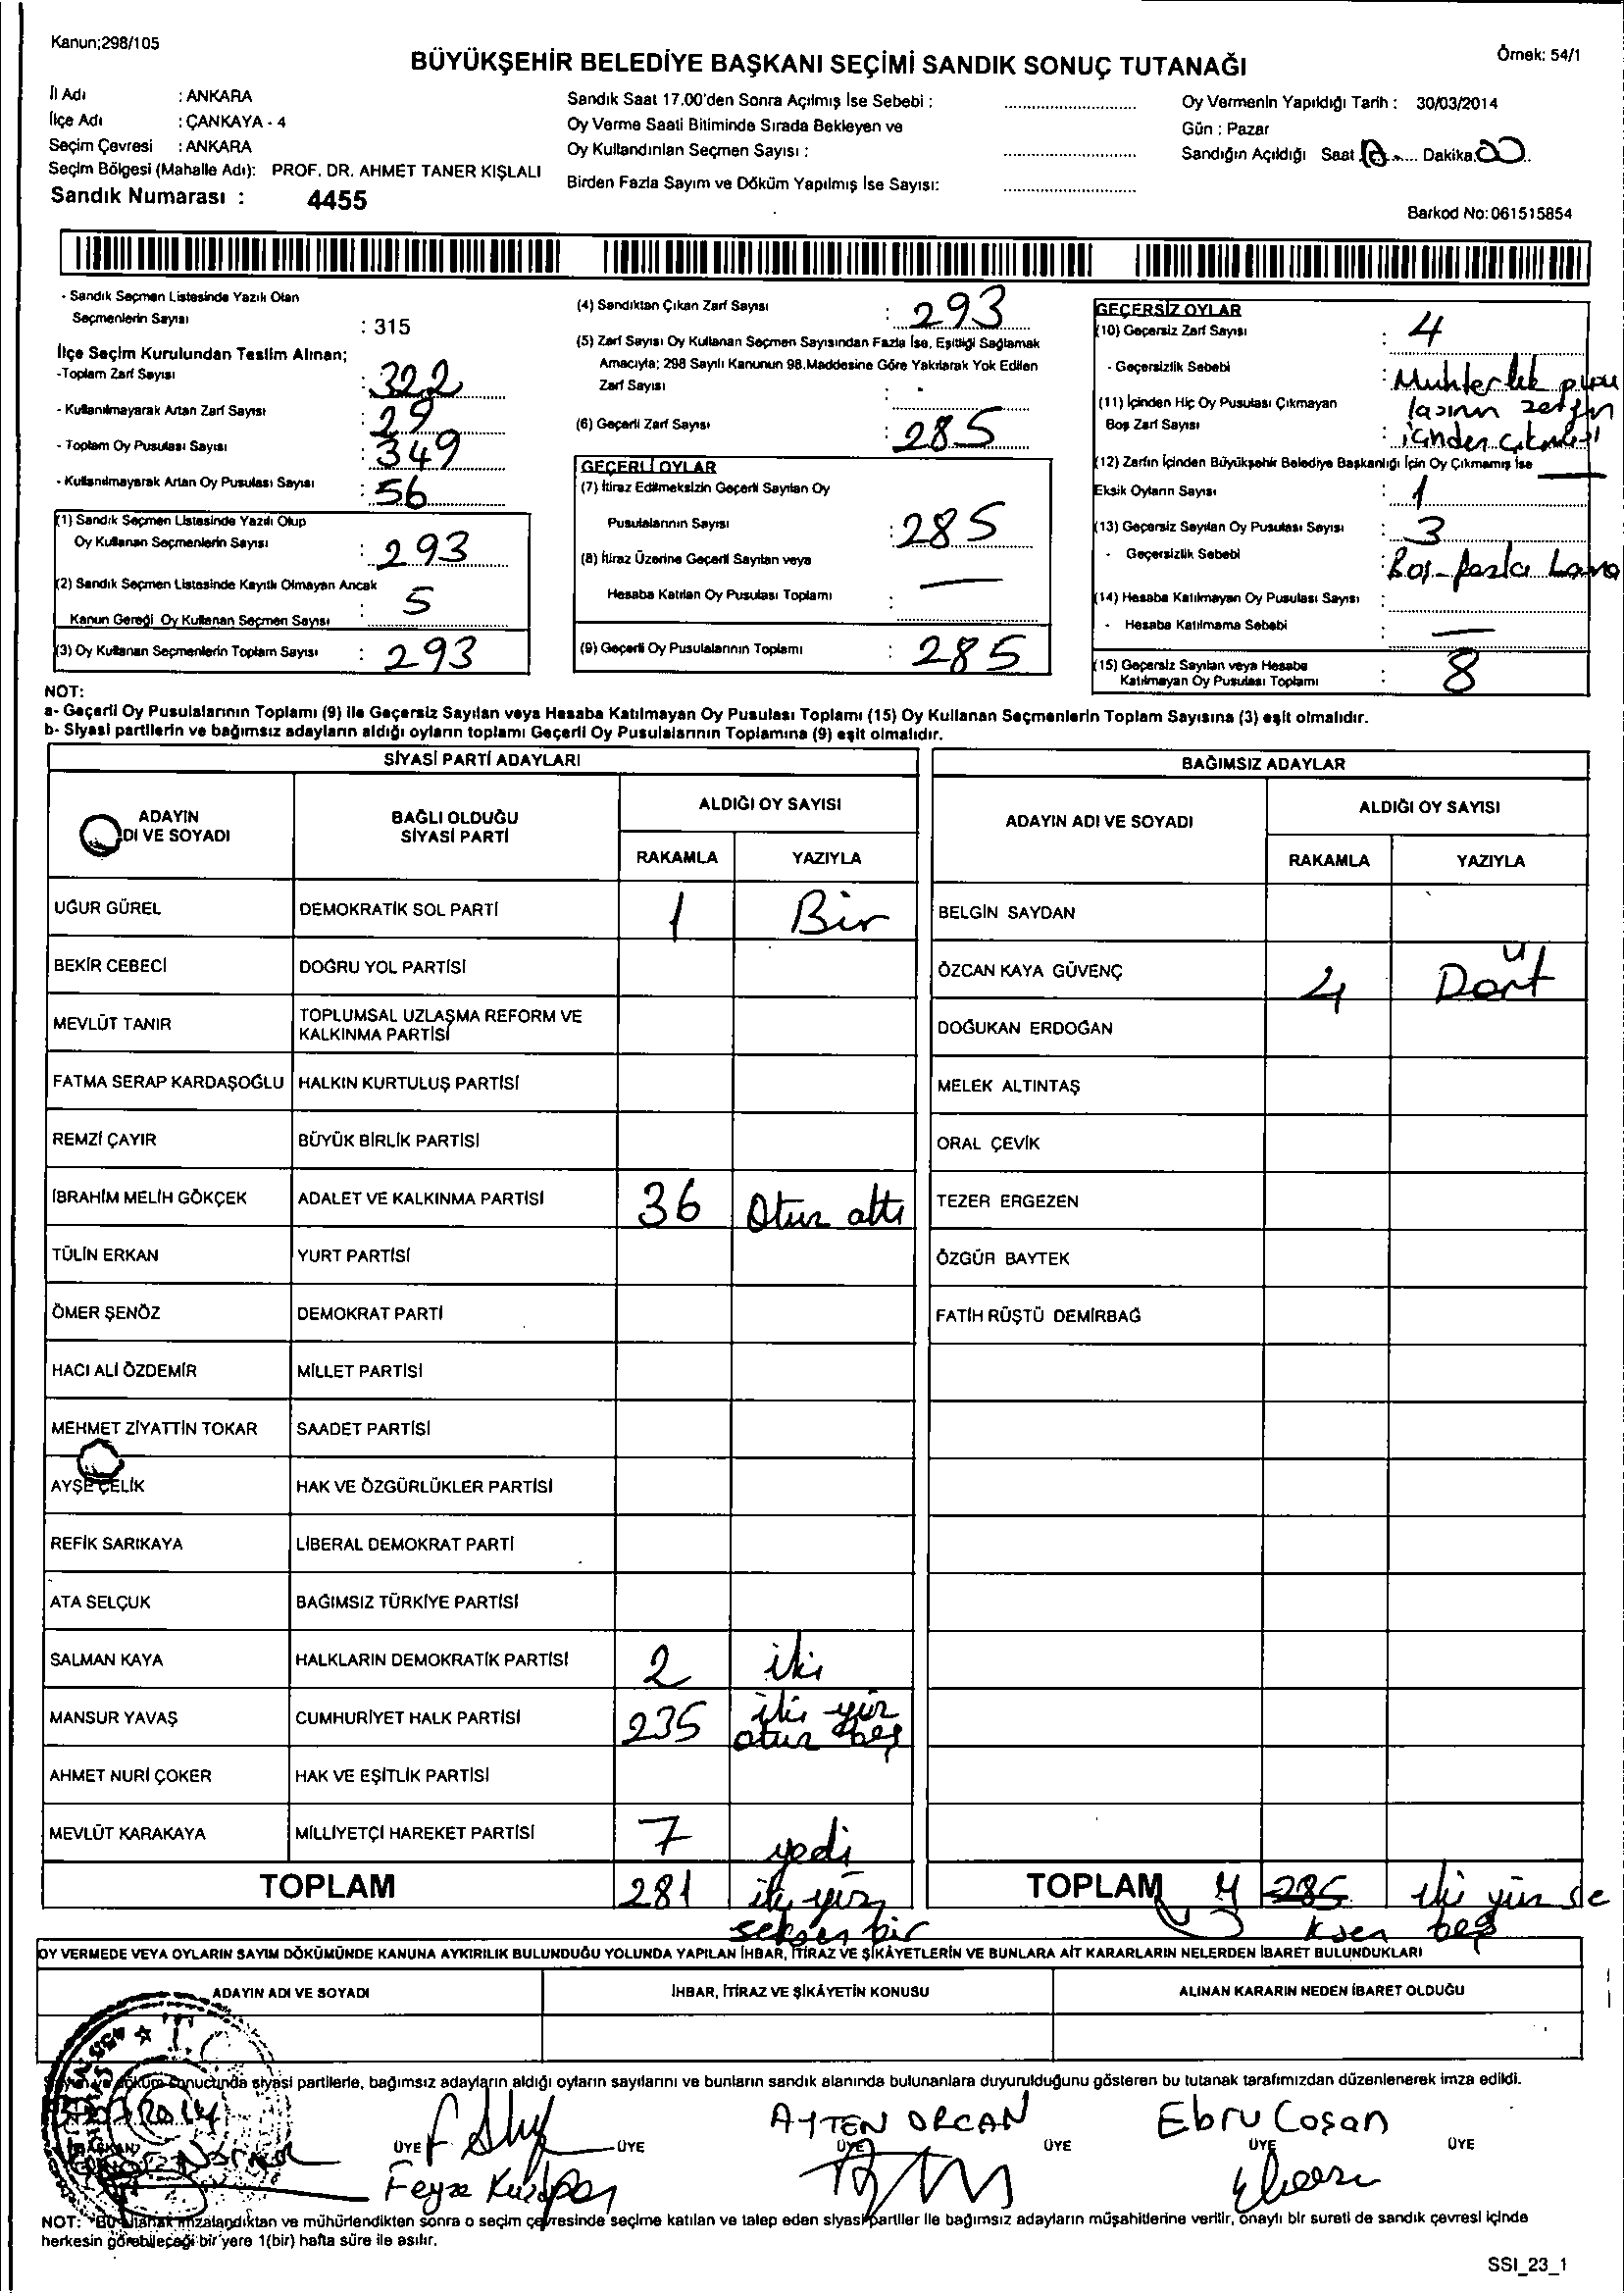 Kanun;298/105
BÜYÜKŞEHİR BELEDİYE BAŞKANI SEÇİMİ SANDIK SONUÇ TUTANAĞI
Örnek: 54/1
İl Adı : ANKARA
İlçe Adı : ÇANKAYA - 4
Seçim Çevresi : ANKARA
Seçim Bölgesi (Mahalle Adı): PROF. DR. AHMET TANER KIŞLALI
Sandık Numarası : 4455
Sandık Saat 17.00'den Sonra Açılmış İse Sebebi :
Oy Verme Saati Bitiminde Sırada Bekleyen ve
Oy Kullandırılan Seçmen Sayısı :
Birden Fazla Sayım ve Döküm Yapılmış İse Sayısı:
Oy Vermenin Yapıldığı Tarih : 30/03/2014
Gün : Pazar
Sandığın Açıldığı Saat Dakika 00
Barkod No:061515854
- Sandık Seçmen Listesinde Yazılı Olan
Seçmenlerin Sayısı : 315
İlçe Seçim Kurulundan Teslim Alınan;
-Toplam Zarf Sayısı : 322
- Kullanılmayarak Artan Zarf Sayısı : 29
- Toplam Oy Pusulası Sayısı : 349
- Kullanılmayarak Artan Oy Pusulası Sayısı : 56
(1) Sandık Seçmen Listesinde Yazılı Olup
Oy Kullanan Seçmenlerin Sayısı : 293
(2) Sandık Seçmen Listesinde Kayıtlı Olmayan Ancak
Kanun Gereği Oy Kullanan Seçmen Sayısı : 5
(3) Oy Kullanan Seçmenlerin Toplam Sayısı : 293
(4) Sandıktan Çıkan Zarf Sayısı : 293
(5) Zarf Sayısı Oy Kullanan Seçmen Sayısından Fazla İse, Eşitliği Sağlamak
Amacıyla; 298 Sayılı Kanunun 98.Maddesine Göre Yakılarak Yok Edilen
Zarf Sayısı :
(6) Geçerli Zarf Sayısı : 285
GEÇERLİ OYLAR
(7) İtiraz Edilmeksizin Geçerli Sayılan Oy
Pusulalarının Sayısı : 285
(8) İtiraz Üzerine Geçerli Sayılan veya
Hesaba Katılan Oy Pusulası Toplamı : —
(9) Geçerli Oy Pusulalarının Toplamı : 285
GEÇERSİZ OYLAR
(10) Geçersiz Zarf Sayısı : 4
- Geçersizlik Sebebi : Muhtarlık pusu
lasının zarfın
(11) İçinden Hiç Oy Pusulası Çıkmayan
Boş Zarf Sayısı : içinden çıkması
(12) Zarfın İçinden Büyükşehir Belediye Başkanlığı İçin Oy Çıkmamış İse
Eksik Oyların Sayısı : 1
(13) Geçersiz Sayılan Oy Pusulası Sayısı : 3
- Geçersizlik Sebebi : Boş- fazla
(14) Hesaba Katılmayan Oy Pusulası Sayısı :
- Hesaba Katılmama Sebebi : —
(15) Geçersiz Sayılan veya Hesaba
Katılmayan Oy Pusulası Toplamı : 8
NOT:
a- Geçerli Oy Pusulalarının Toplamı (9) ile Geçersiz Sayılan veya Hesaba Katılmayan Oy Pusulası Toplamı (15) Oy Kullanan Seçmenlerin Toplam Sayısına (3) eşit olmalıdır.
b- Siyasi partilerin ve bağımsız adayların aldığı oyların toplamı Geçerli Oy Pusulalarının Toplamına (9) eşit olmalıdır.
SİYASİ PARTİ ADAYLARI
ADAYIN
DI VE SOYADI
BAĞLI OLDUĞU
SİYASİ PARTİ
ALDIĞI OY SAYISI
RAKAMLA YAZIYLA
UĞUR GÜREL DEMOKRATİK SOL PARTİ 1 Bir
BEKİR CEBECİ DOĞRU YOL PARTİSİ
MEVLÜT TANIR TOPLUMSAL UZLAŞMA REFORM VE
KALKINMA PARTİSİ
FATMA SERAP KARDAŞOĞLU HALKIN KURTULUŞ PARTİSİ
REMZİ ÇAYIR BÜYÜK BİRLİK PARTİSİ
İBRAHİM MELİH GÖKÇEK ADALET VE KALKINMA PARTİSİ 36 Otuz altı
TÜLİN ERKAN YURT PARTİSİ
ÖMER ŞENÖZ DEMOKRAT PARTİ
HACI ALİ ÖZDEMİR MİLLET PARTİSİ
MEHMET ZİYATTİN TOKAR SAADET PARTİSİ
AYŞE ÇELİK HAK VE ÖZGÜRLÜKLER PARTİSİ
REFİK SARIKAYA LİBERAL DEMOKRAT PARTİ
ATA SELÇUK BAĞIMSIZ TÜRKİYE PARTİSİ
SALMAN KAYA HALKLARIN DEMOKRATİK PARTİSİ 2 iki
MANSUR YAVAŞ CUMHURİYET HALK PARTİSİ 235 iki yüz
otuz beş
AHMET NURİ ÇOKER HAK VE EŞİTLİK PARTİSİ
MEVLÜT KARAKAYA MİLLİYETÇİ HAREKET PARTİSİ 7 yedi
TOPLAM 281 iki yüz
seksen bir
BAĞIMSIZ ADAYLAR
ADAYIN ADI VE SOYADI
ALDIĞI OY SAYISI
RAKAMLA YAZIYLA
BELGİN SAYDAN
ÖZCAN KAYA GÜVENÇ 4 Dört
DOĞUKAN ERDOĞAN
MELEK ALTINTAŞ
ORAL ÇEVİK
TEZER ERGEZEN
ÖZGÜR BAYTEK
FATİH RÜŞTÜ DEMİRBAĞ
TOPLAM 4 285 iki yüz se
ksen beş
OY VERMEDE VEYA OYLARIN SAYIM DÖKÜMÜNDE KANUNA AYKIRILIK BULUNDUĞU YOLUNDA YAPILAN İHBAR, İTİRAZ VE ŞİKÂYETLERİN VE BUNLARA AİT KARARLARIN NELERDEN İBARET BULUNDUKLARI
ADAYIN ADI VE SOYADI İHBAR, İTİRAZ VE ŞİKÂYETİN KONUSU ALINAN KARARIN NEDEN İBARET OLDUĞU
Sayım ve döküm sonucunda siyasi partilerle, bağımsız adayların aldığı oyların sayılarını ve bunların sandık alanında bulunanlara duyurulduğunu gösteren bu tutanak tarafımızdan düzenlenerek imza edildi.
2014
BAŞKAN
ÜYE ÜYE ÜYE ÜYE ÜYE ÜYE
AYTEN ORCAN
Ebru Coşan
Feyza
NOT: Bu tutanak imzalandıktan ve mühürlendikten sonra o seçim çevresinde seçime katılan ve talep eden siyasi partiler ile bağımsız adayların müşahitlerine verilir, onaylı bir sureti de sandık çevresi içinde
herkesin görebileceği bir yere 1(bir) hafta süre ile asılır.
SSI_23_1